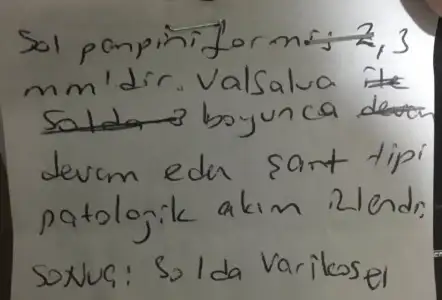 Sol panpiniformis 2,3
mm'dir. Valsalva
boyunca
devam eder şant tipi
patolojik akım izlendi.
SONUÇ: Solda Varikosel